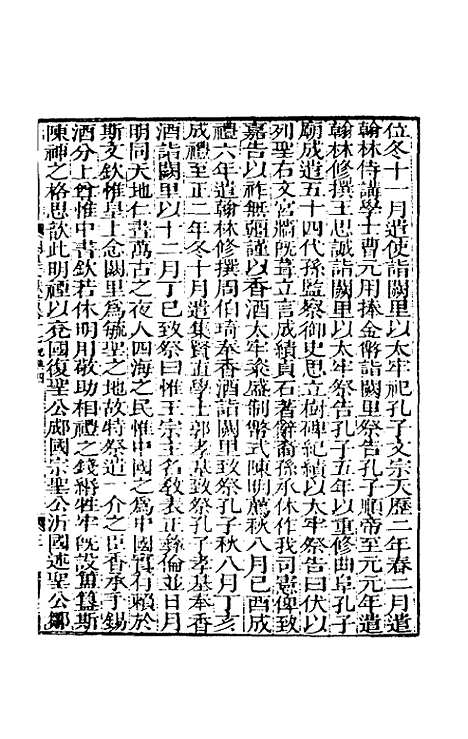 位冬十一月遣使詣闕里以太牢祀孔子文宗天歷二年春二月遣
翰林侍講學士曹元用捧金幣詣闕里祭告孔子順帝至元元年遣
翰林修撰王思誠詣闕里以太牢祭告孔子五年以重修曲阜孔子
廟成遣五十四代孫監察御史思立樹碑紀績以太牢祭告曰伏以
列聖右文宮牆旣葺立言成績貞石著辭裔孫承休作我司憲俾致
嘉告以祚無疆謹以香酒太牢粢盛制幣式陳明薦秋八月己酉成
禮六年遣翰林修撰周伯琦奉香酒詣闕里致祭孔子秋八月丁亥
成禮至正二年冬十月遣集賢直學士郭孝基致祭孔子孝基奉香
酒詣闕里以十二月丁巳致祭曰惟王宗主名敎表正彝倫並日月
明同天地仁晝萬古之夜人四海之民惟中國之爲中國實有賴於
斯文欽惟皇上念闕里爲毓聖之地故特祭遣一介之臣香承于錫
酒分上惟中書欽若休明用敬助相禮之錢絣牲牢旣設簠簋斯
陳神之格思歆此明禋以兗國復聖公郕國宗聖公沂國述聖公鄒